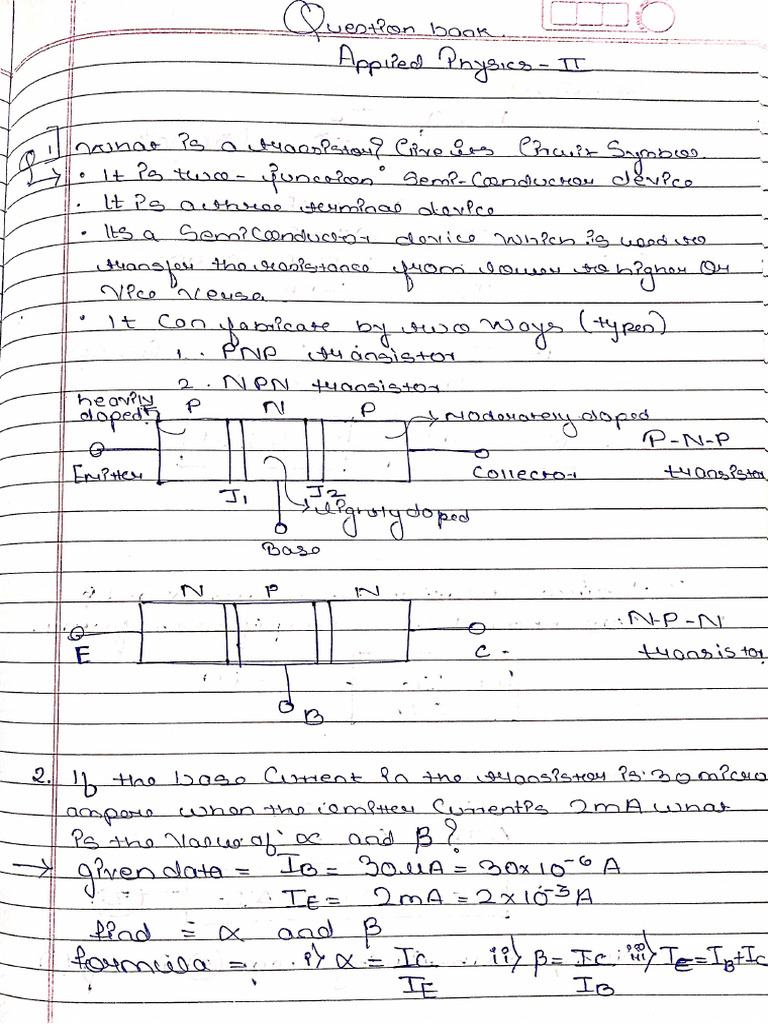 Question bank.
Applied Physics - II
Q1] What is a transistor? Circuits Circuit Symbol.
→ • It is two - junction semi-Conductor device
• It is a three terminal device
• Its a Semiconductor device which is used to
transfer the resistance from lower to higher or
Vice versa.
• It can fabricate by two ways (types)
1. PNP transistor
2. NPN transistor
heavily
doped
P N P
→ Moderately doped
P-N-P
transistor
Emitter
Collector
J1 J2
→ lightly doped
Base
N P N
N-P-N
transistor
E
C
B
2. If the base Current in the transistor is 30 micro
ampere when the emitter Current is 2mA what
is the value of α and β?
→ given data = IB = 30μA = 30×10-6 A
IE = 2mA = 2×10-3 A
find = α and β
formula = i) α = IC/IE ii) β = IC/IB iii) IE = IB+IC